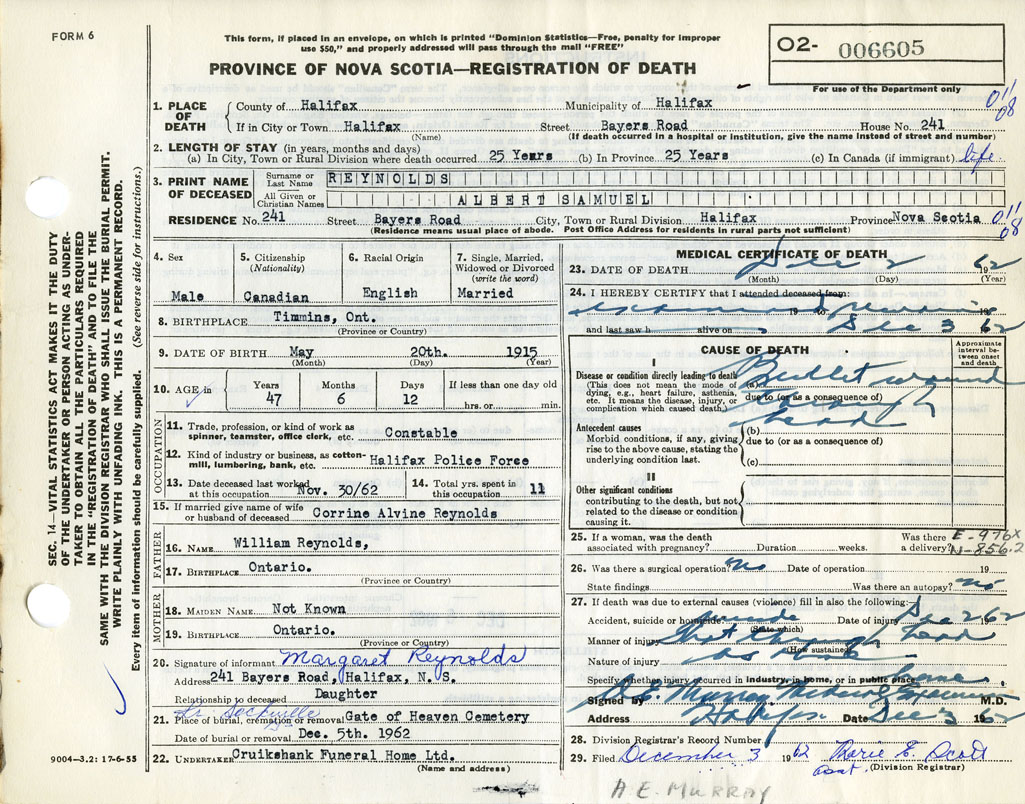 FORM 6
This form, if placed in an envelope, on which is printed "Dominion Statistics—Free, penalty for improper
use $50," and properly addressed will pass through the mail "FREE"
02- 006605
PROVINCE OF NOVA SCOTIA—REGISTRATION OF DEATH
For use of the Department only
1. PLACE OF DEATH
County of Halifax Municipality of Halifax
011
08
If in City or Town Halifax Street Bayers Road House No. 241
(Name) (If death occurred in a hospital or institution, give the name instead of street and number)
2. LENGTH OF STAY (in years, months and days)
(a) In City, Town or Rural Division where death occurred 25 Years (b) In Province 25 Years (c) In Canada (if immigrant) life
3. PRINT NAME OF DECEASED
Surname or Last Name REYNOLDS
All Given or Christian Names ALBERT SAMUEL
RESIDENCE No. 241 Street Bayers Road City, Town or Rural Division Halifax Province Nova Scotia
011
08
(Residence means usual place of abode. Post Office Address for residents in rural parts not sufficient)
4. Sex
Male
5. Citizenship
(Nationality)
Canadian
6. Racial Origin
English
7. Single, Married,
Widowed or Divorced
(write the word)
Married
8. BIRTHPLACE Timmins, Ont.
(Province or Country)
9. DATE OF BIRTH May 20th. 1915
(Month) (Day) (Year)
10. AGE in
Years Months Days If less than one day old
47 6 12 hrs. or min.
OCCUPATION
11. Trade, profession, or kind of work as
spinner, teamster, office clerk, etc. Constable
12. Kind of industry or business, as cotton-
mill, lumbering, bank, etc. Halifax Police Force
13. Date deceased last worked
at this occupation Nov. 30/62
14. Total yrs. spent in
this occupation 11
15. If married give name of wife
or husband of deceased Corrine Alvine Reynolds
FATHER
16. NAME William Reynolds,
17. BIRTHPLACE Ontario.
(Province or Country)
MOTHER
18. MAIDEN NAME Not Known
19. BIRTHPLACE Ontario.
(Province or Country)
20. Signature of informant Margaret Reynolds
Address 241 Bayers Road, Halifax, N. S.
Relationship to deceased Daughter
Sackville
21. Place of burial, cremation or removal Gate of Heaven Cemetery
Date of burial or removal Dec. 5th. 1962
22. UNDERTAKER Cruikshank Funeral Home Ltd.
(Name and address)
MEDICAL CERTIFICATE OF DEATH
23. DATE OF DEATH Dec 2 1962
(Month) (Day) (Year)
24. I HEREBY CERTIFY that I attended deceased from:
examined remains
19 to 19
and last saw h alive on Dec 3 62
CAUSE OF DEATH
Approximate
interval be-
tween onset
and death
I
Disease or condition directly leading to death
(This does not mean the mode of
dying, e.g., heart failure, asthenia,
etc. It means the disease, injury, or
complication which caused death.)
(a) Bullet wound
due to (or as a consequence of)
through
head
Antecedent causes
Morbid conditions, if any, giving
rise to the above cause, stating the
underlying condition last.
(b)
due to (or as a consequence of)
(c)
II
Other significant conditions
contributing to the death, but not
related to the disease or condition
causing it.
25. If a woman, was the death
associated with pregnancy? Duration weeks.
Was there
a delivery?
E-976X
N-856.2
26. Was there a surgical operation? No Date of operation 19
State findings Was there an autopsy? No
27. If death was due to external causes (violence) fill in also the following:
Accident, suicide or homicide Date of injury Dec 2 62
(State which)
Manner of injury Shot through head
(How sustained)
Nature of injury As above
Specify whether injury occurred in industry in home, or in public place home
Signed by Murray Medical Examiner M.D.
Address Halifax Date Dec 3 1962
28. Division Registrar's Record Number
29. Filed December 3 1962
asst. (Division Registrar)
A E. MURRAY
SEC. 14—VITAL STATISTICS ACT MAKES IT THE DUTY
OF THE UNDERTAKER OR PERSON ACTING AS UNDER-
TAKER TO OBTAIN ALL THE PARTICULARS REQUIRED
IN THE "REGISTRATION OF DEATH" AND TO FILE THE
SAME WITH THE DIVISION REGISTRAR WHO SHALL ISSUE THE BURIAL PERMIT.
WRITE PLAINLY WITH UNFADING INK. THIS IS A PERMANENT RECORD.
Every item of information should be carefully supplied. (See reverse side for instructions.)
9004—3.2: 17-6-55